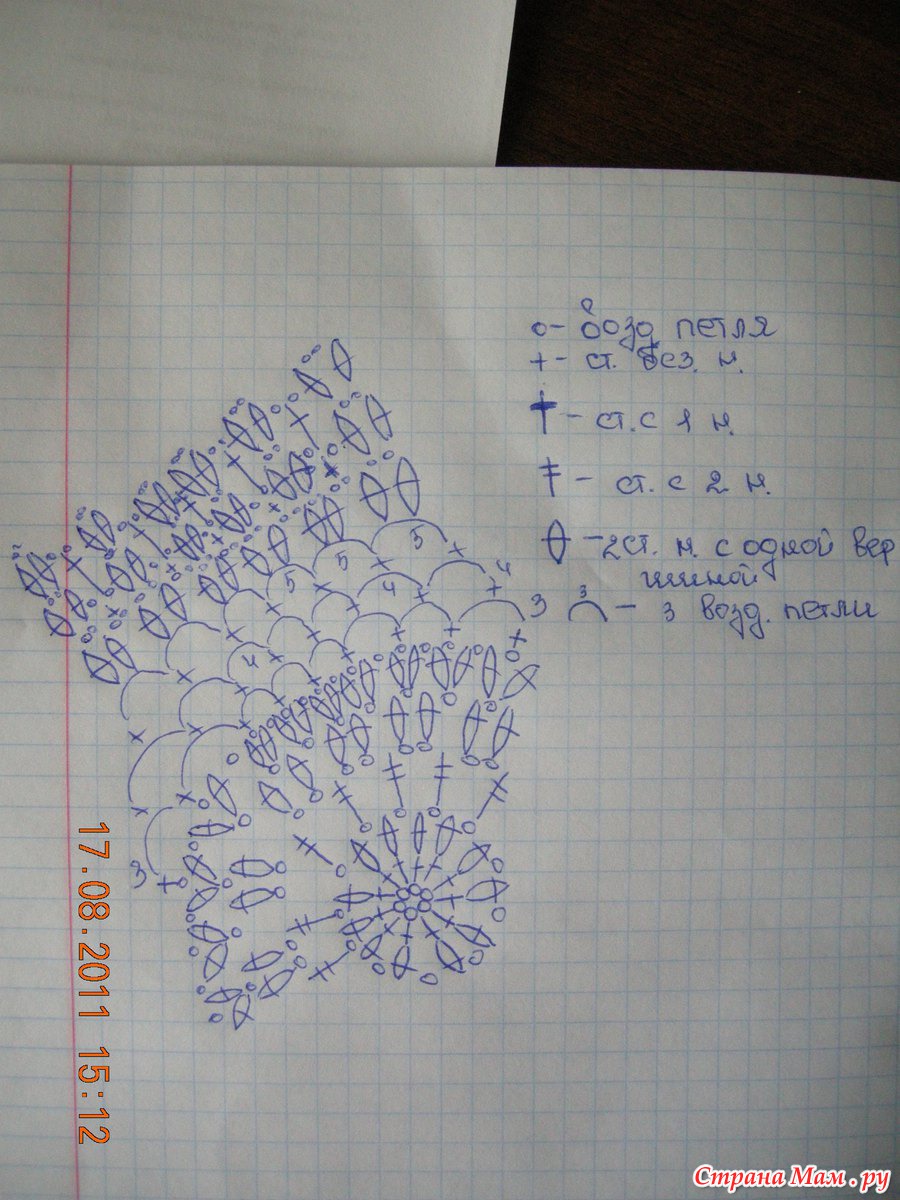 о- возд петля
+- ст. без. н.
† - ст. с 1 н.
‡ - ст. с 2 н.
- 2 ст. н. с одной вер
шиной
3
- 3 возд. петли
5
5
3
4
4
3
4
3
17.08.2011 15:12
Страна Мам.ру